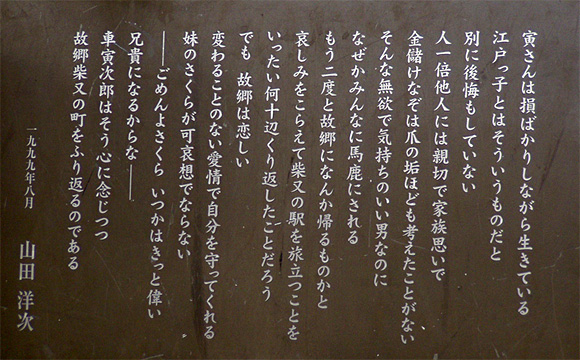 寅さんは損ばかりしながら生きている
江戸っ子とはそういうものだと
別に後悔もしていない
人一倍他人には親切で家族思いで
金儲けなぞは爪の垢ほども考えたことがない
そんな無欲で気持ちのいい男なのに
なぜかみんなに馬鹿にされる
もう二度と故郷になんか帰るものかと
哀しみをこらえて柴又の駅を旅立つことを
いったい何十辺くり返したことだろう
でも 故郷は恋しい
変わることのない愛情で自分を守ってくれる
妹のさくらが可哀想でならない
――ごめんよさくら いつかはきっと偉い
兄貴になるからな――
車寅次郎はそう心に念じつつ
故郷柴又の町をふり返るのである
一九九九年八月
山田 洋次